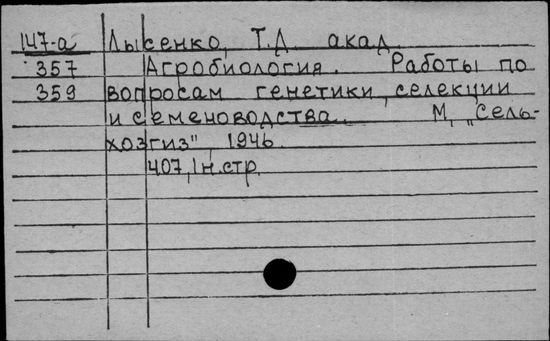 147-а Лысенко, Т.Д. акад.
357 Агробиология. Работы по
359 вопросам генетики, селекции
и семеноводства. М, „Сель-
хозгиз", 1946.
407, 1 н.стр.